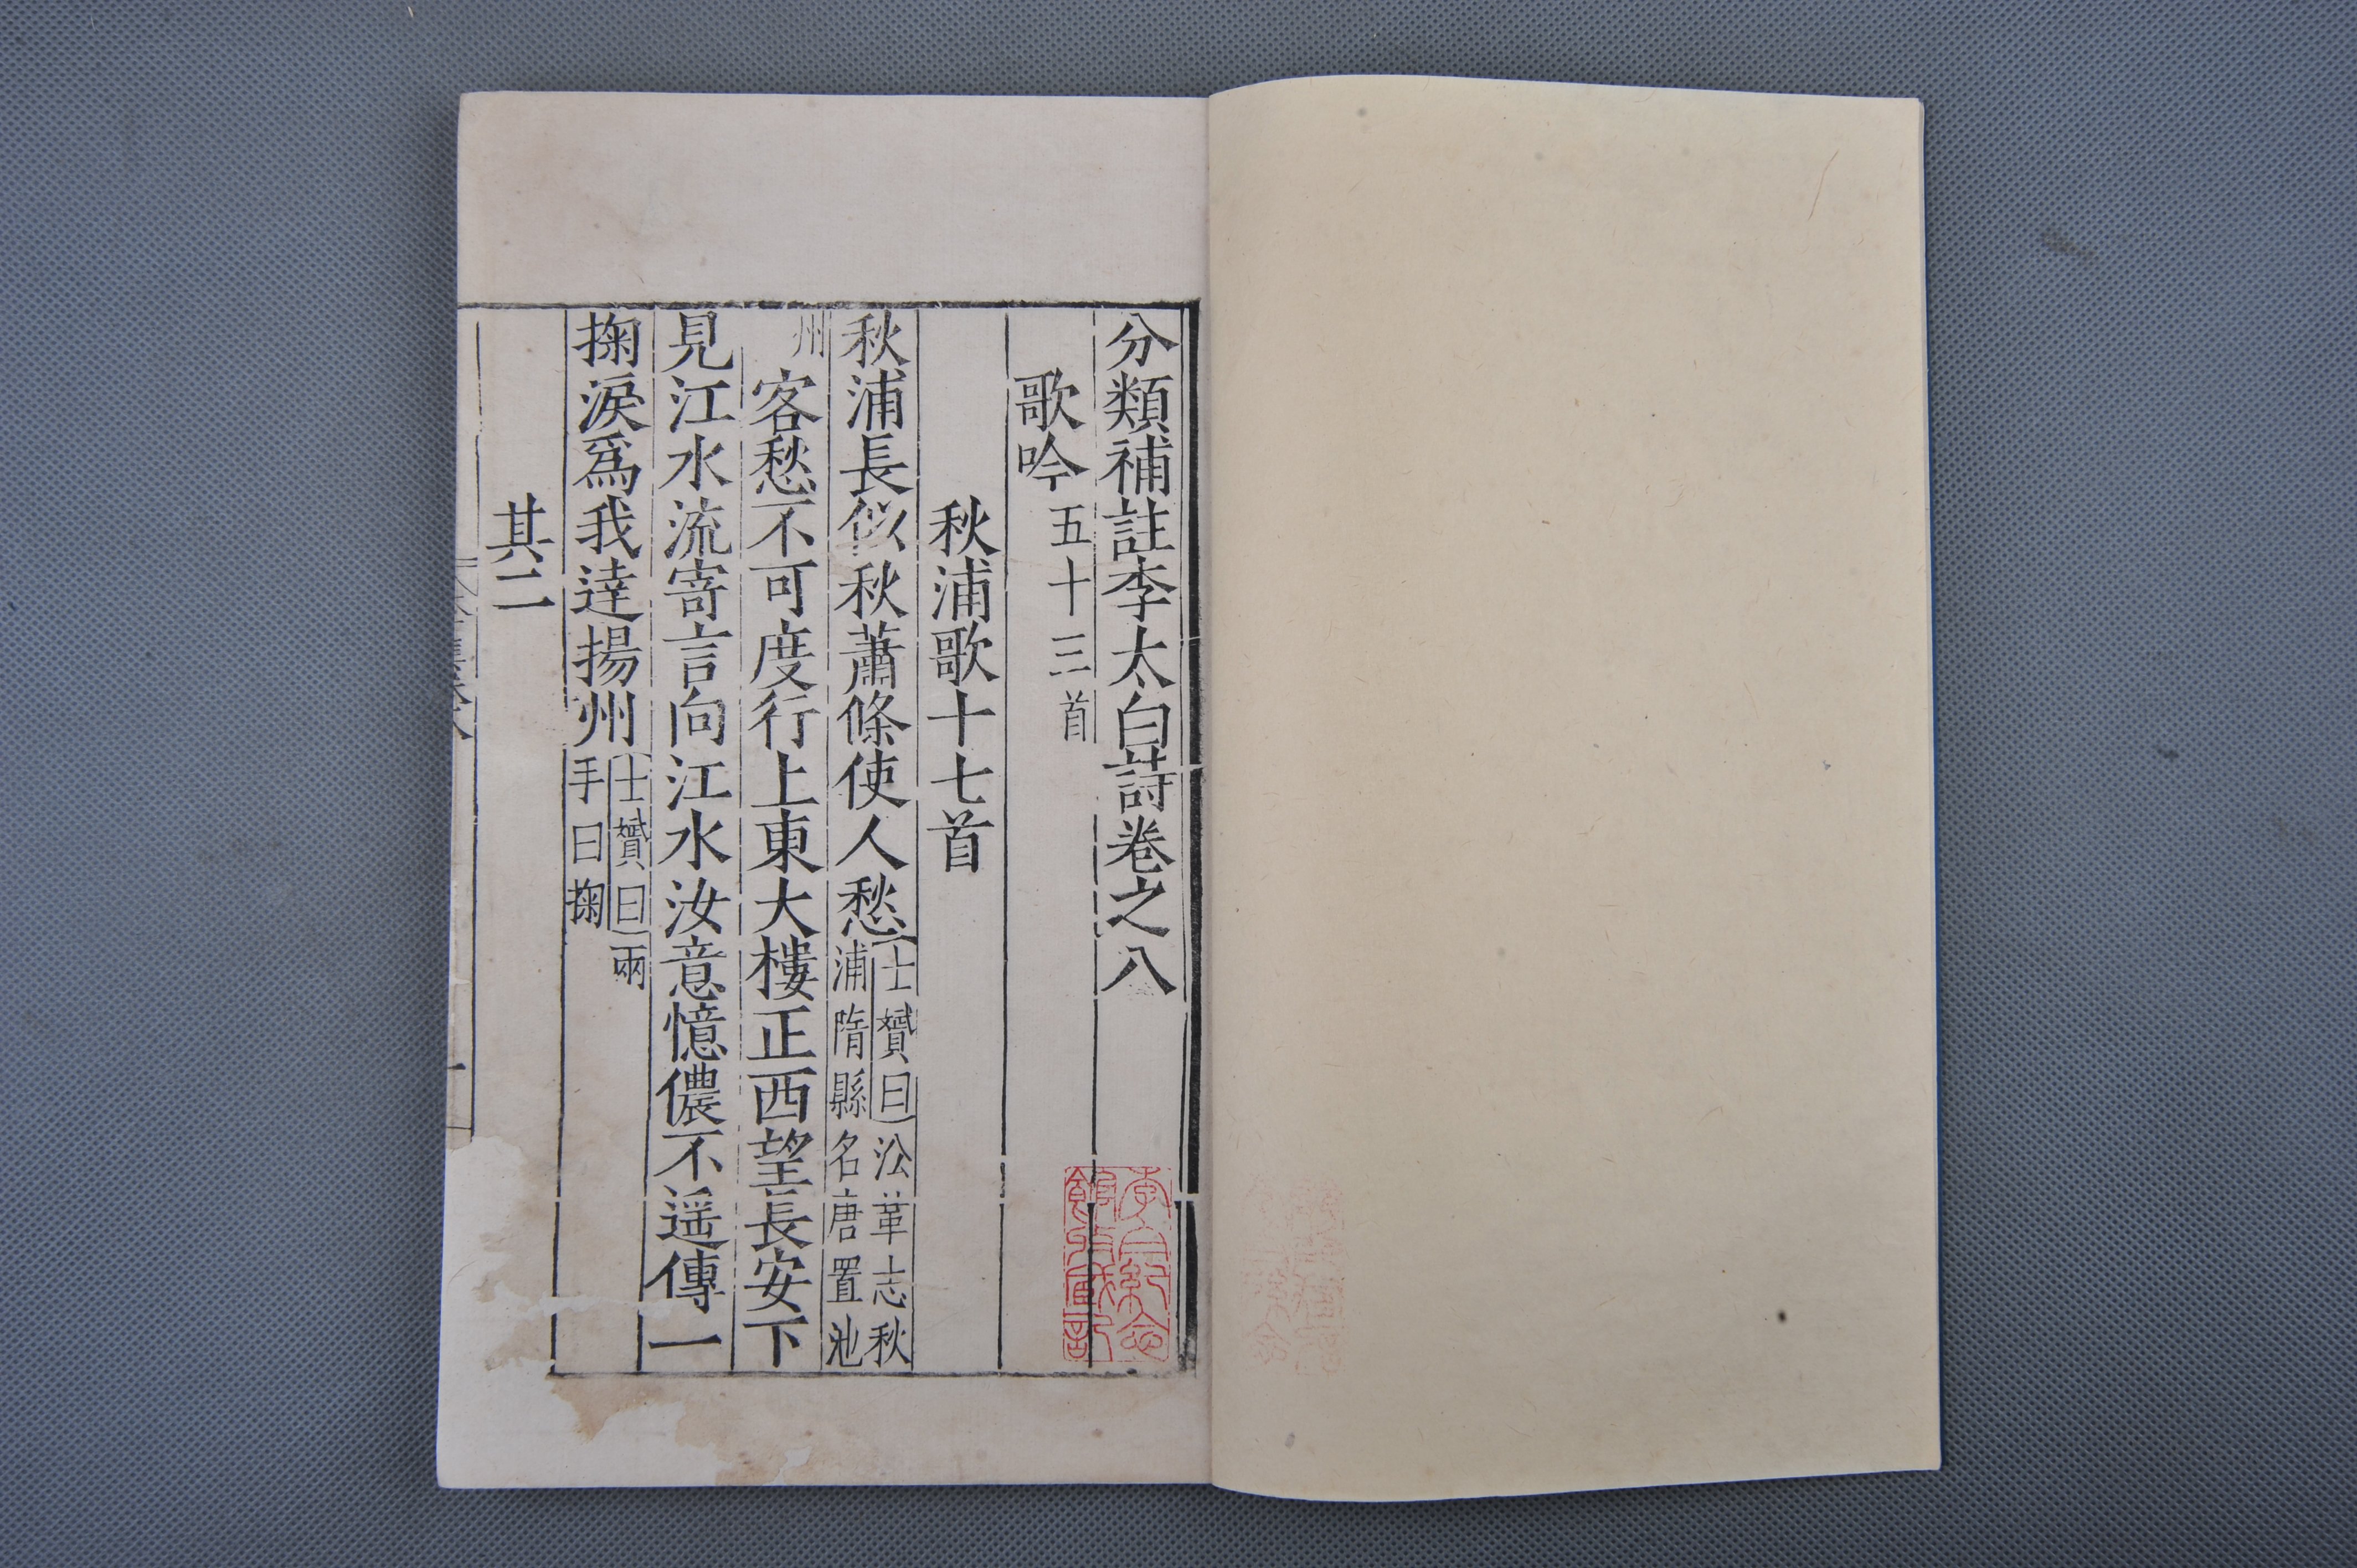 分類補註李太白詩卷之八
歌吟五十三首
秋浦歌十七首
秋浦長似秋蕭條使人愁士贇曰沿革志秋浦隋縣名唐置池
州客愁不可度行上東大樓正西望長安下
見江水流寄言向江水汝意憶儂不遥傳一
掬淚爲我達揚州士贇曰兩手曰掬
其二
李白紀念館收藏記